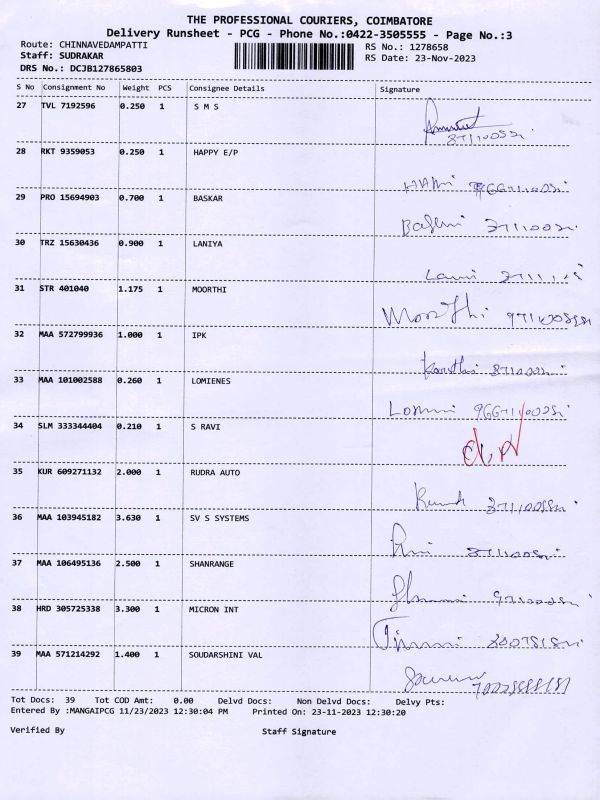 THE PROFESSIONAL COURIERS, COIMBATORE
Delivery Runsheet - PCG - Phone No.:0422-3505555 - Page No.:3
Route: CHINNAVEDAMPATTI RS No.: 1278658
Staff: SUDRAKAR RS Date: 23-Nov-2023
DRS No.: DCJB127865803
S No Consignment No Weight PCS Consignee Details Signature
27 TVL 7192596 0.250 1 S M S
28 RKT 9359053 0.250 1 HAPPY E/P
29 PRO 15694903 0.700 1 BASKAR
30 TRZ 15630436 0.900 1 LANIYA
31 STR 401040 1.175 1 MOORTHI Moorthi
32 MAA 572799936 1.000 1 IPK
33 MAA 101002588 0.260 1 LOMIENES
34 SLM 333344404 0.210 1 S RAVI
35 KUR 609271132 2.000 1 RUDRA AUTO
36 MAA 103945182 3.630 1 SV S SYSTEMS
37 MAA 106495136 2.500 1 SHANRANGE
38 HRD 305725338 3.300 1 MICRON INT
39 MAA 571214292 1.400 1 SOUDARSHINI VAL
Tot Docs: 39 Tot COD Amt: 0.00 Delvd Docs: Non Delvd Docs: Delvy Pts:
Entered By :MANGAIPCG 11/23/2023 12:30:04 PM Printed On: 23-11-2023 12:30:20
Verified By Staff Signature